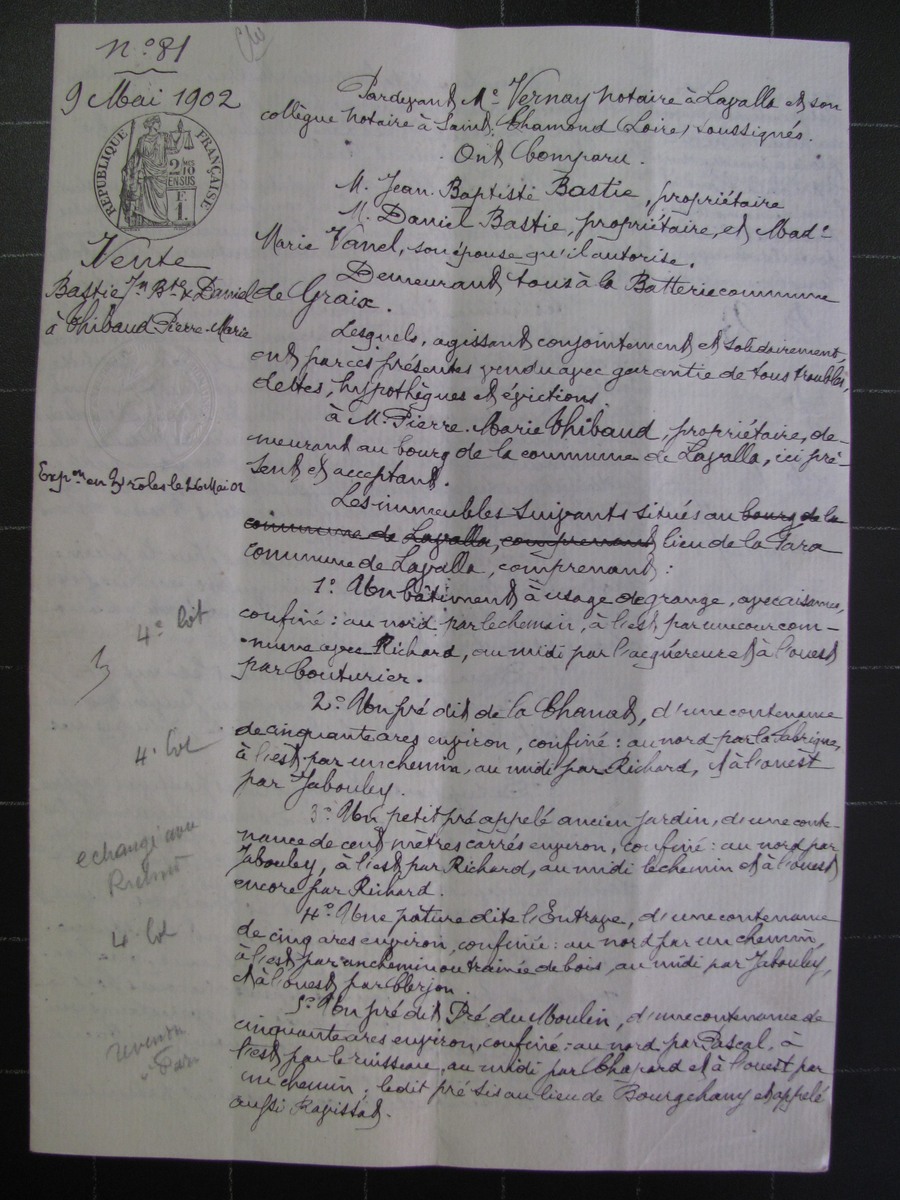 n° 81
9 Mai 1902
RÉPUBLIQUE FRANÇAISE
2/10 EN SUS
1 F.
Vente
Bastie Jn Bte & Daniel
à Thibaud Pierre-Marie
Expon en 3 rôles le 26 Mai 02
Pardevant Me Vernay notaire à Lavalla et son
collègue notaire à Saint Chamond (Loire) soussignés.
Ont Comparu.
M. Jean-Baptiste Bastie, propriétaire
M. Daniel Bastie, propriétaire, et Made
Marie Vanel, son épouse qu'il autorise.
Demeurant tous à la Batterie commune
de Graix.
Lesquels, agissant conjointement et solidairement,
ont par ces présentes vendu avec garantie de tous troubles,
dettes, hypothèques et évictions.
à M. Pierre-Marie Thibaud, propriétaire, de-
meurant au bourg de la commune de Lavalla, ici pré-
sent et acceptant.
Les immeubles suivants situés au bourg de la
commune de Lavalla, comprenant lieu de la Fara
commune de Lavalla, comprenant :
1° Un bâtiment à usage de grange, avec aisances,
confiné : au nord par le chemin, à l'est par une cour com-
mune avec Richard, au midi par l'acquéreur et à l'ouest
par Couturier.
4e Lot
2° Un pré dit de la Chanat, d'une contenance
de cinquante ares environ, confiné : au nord par la fabrique,
à l'est par un chemin, au midi par Richard, et à l'ouest
par Jabouley.
4e Lot
3° Un petit pré appelé ancien jardin, d'une conte-
nance de cent mètres carrés environ, confiné : au nord par
Jabouley, à l'est par Richard, au midi le chemin et à l'ouest
encore par Richard.
echangé avec
Richard
4° Une pâture dite l'Entraye, d'une contenance
de cinq ares environ, confinée : au nord par un chemin,
à l'est par un chemin ou trainée de bois, au midi par Jabouley,
et à l'ouest par Clerjon.
4 Lot
5° Un pré dit Pré du Moulin, d'une contenance de
cinquante ares environ, confiné : au nord par Pascal, à
l'est par le ruisseau, au midi par Chapard et à l'ouest par
un chemin ; le dit pré sis au lieu de Bourgchany et appelé
aussi Ravissat.